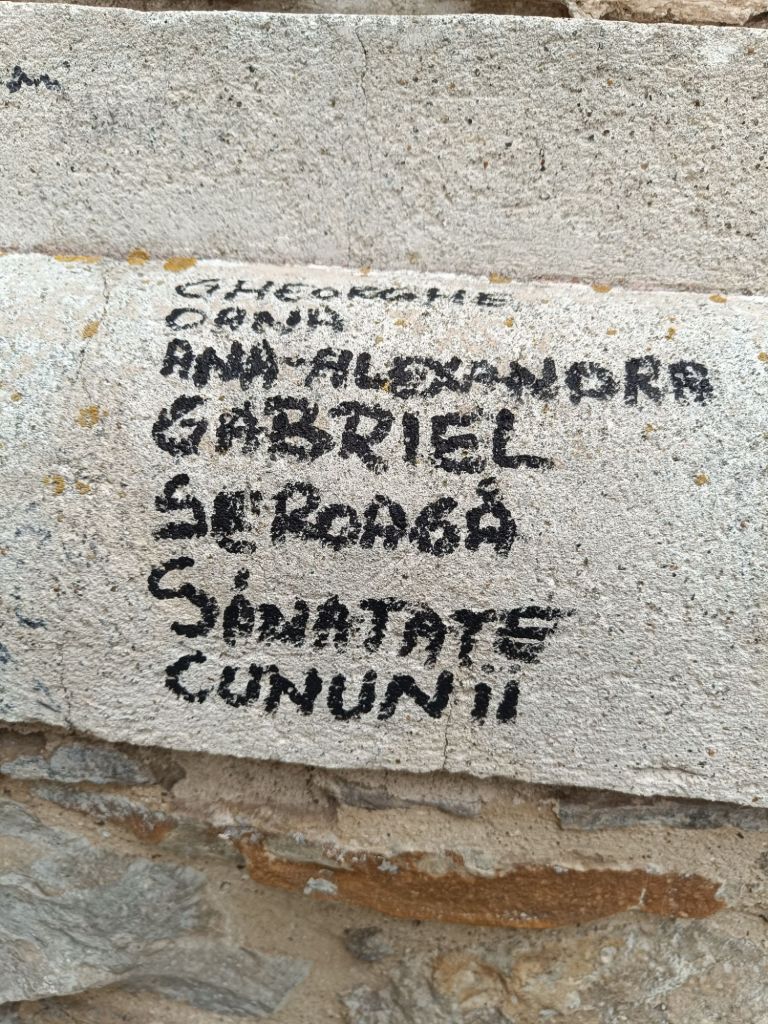 GHEORGHE
OANA
ANA-ALEXANDRA
GABRIEL
SE ROAGĂ
SĂNATATE
CUNUNII